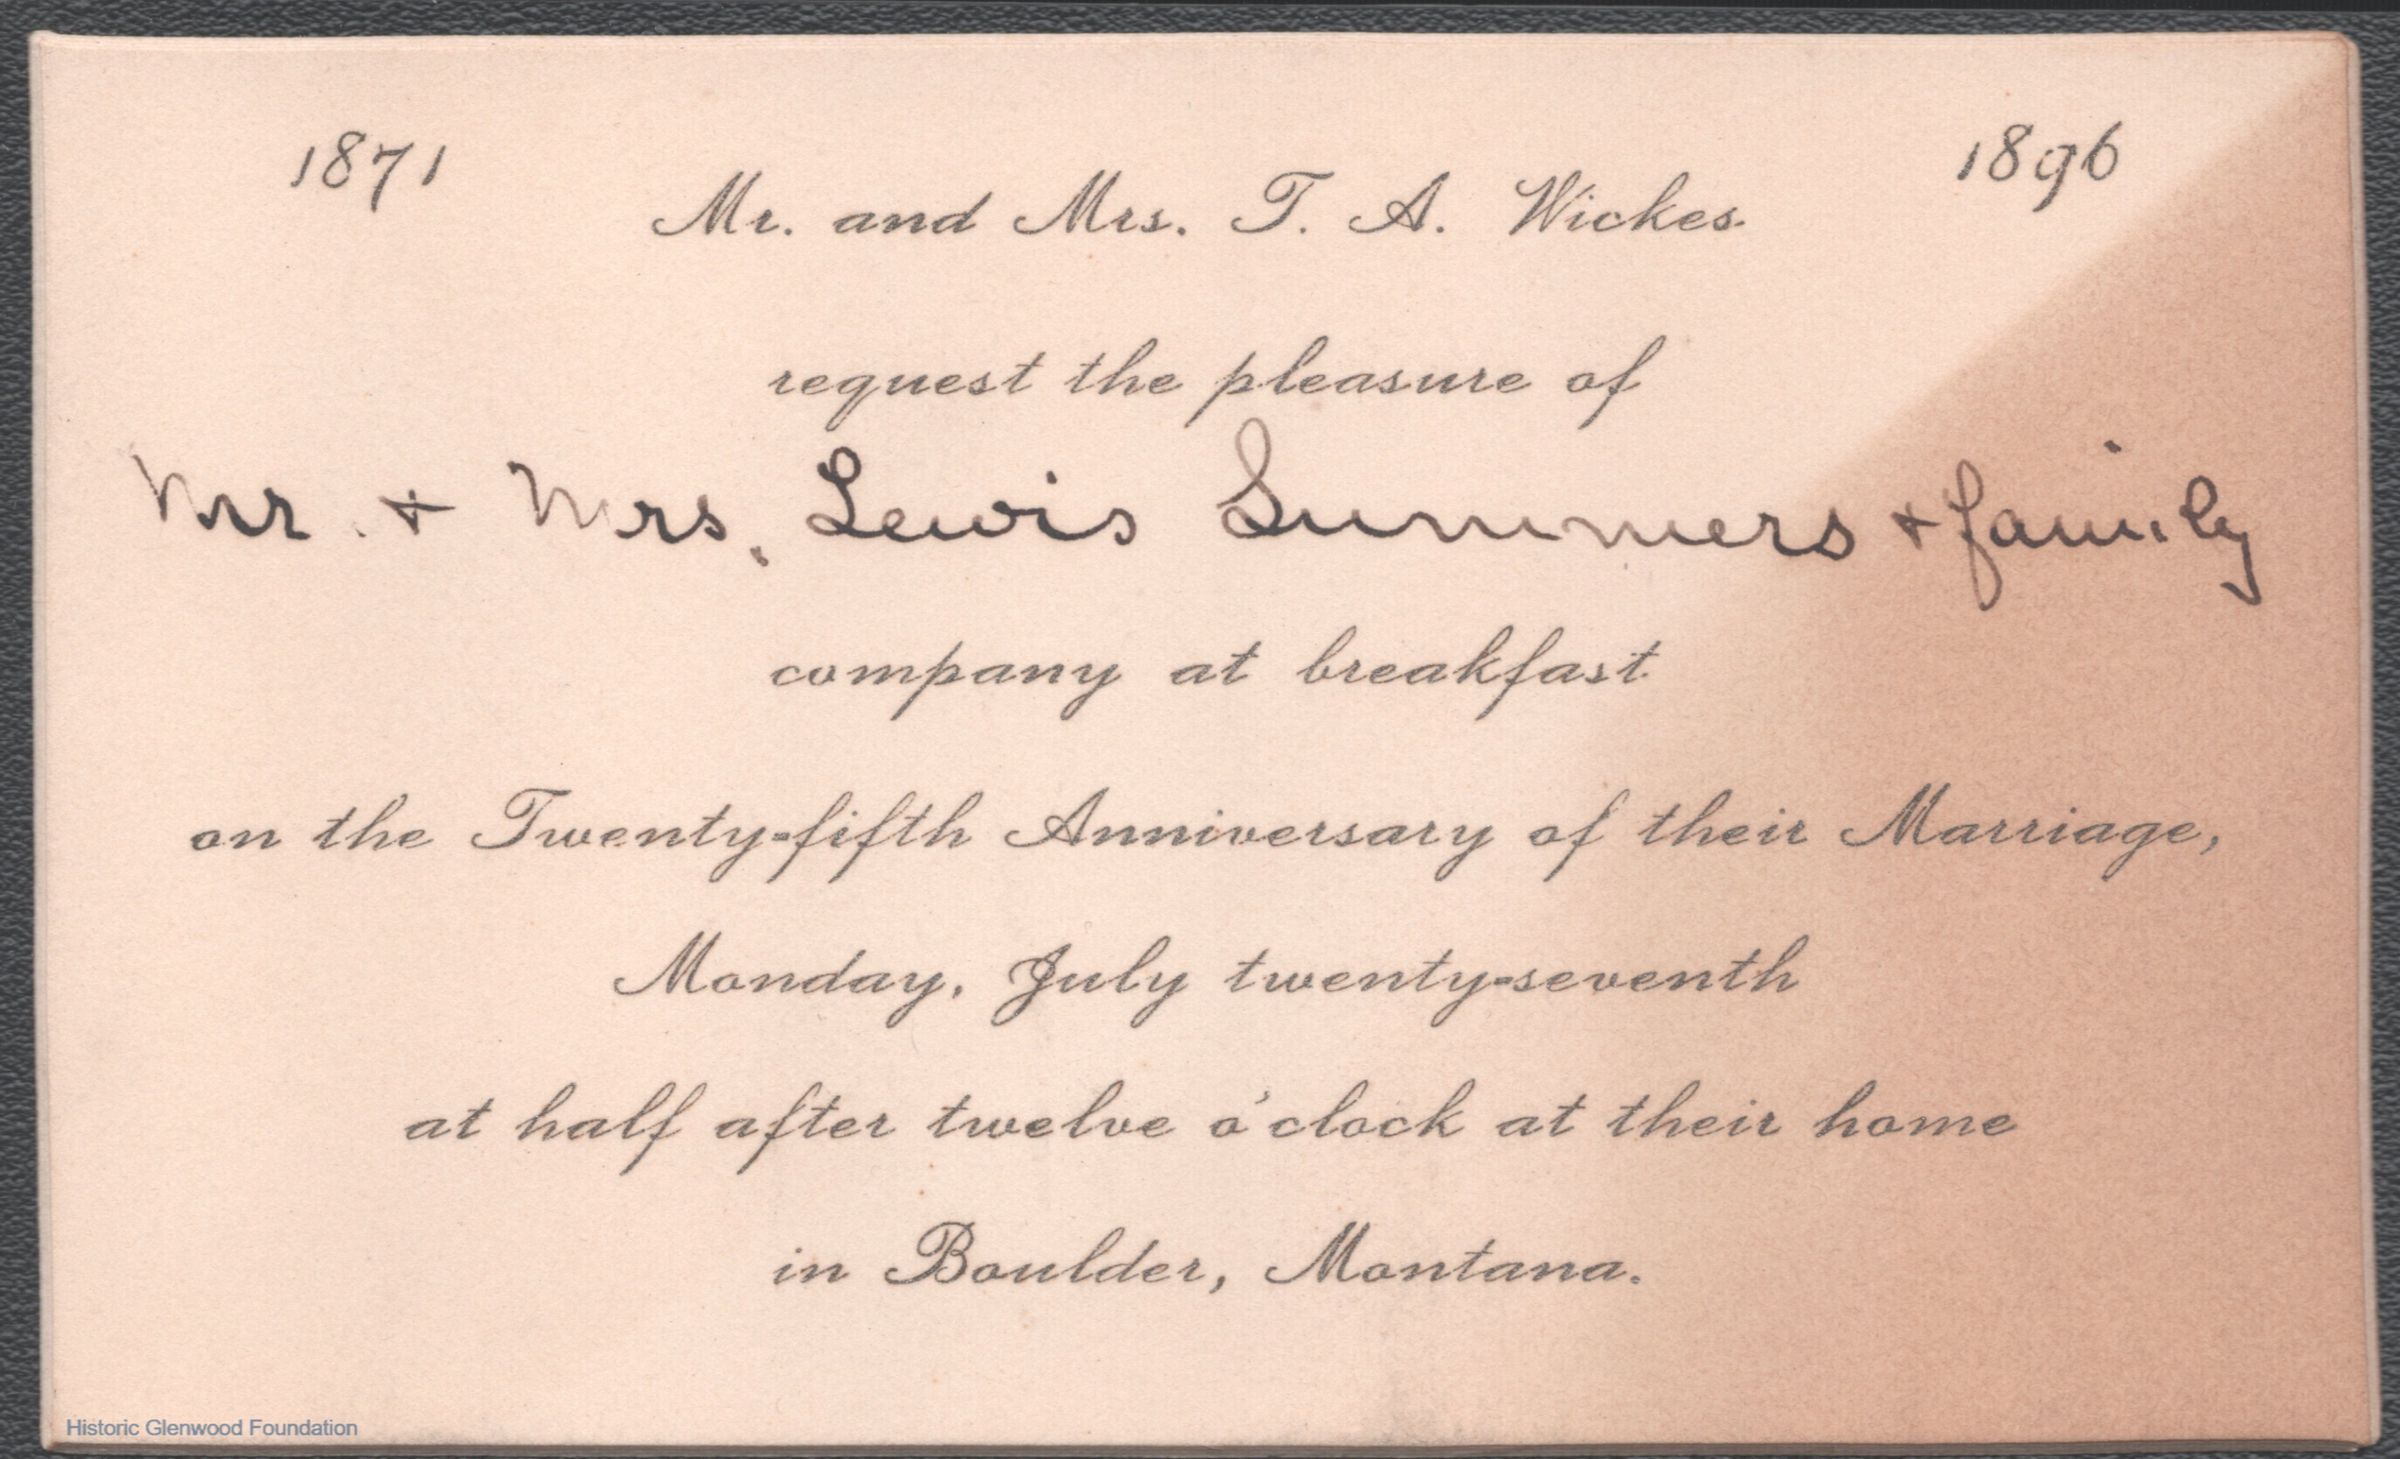 1871 1896
Mr. and Mrs. T. A. Wickes
request the pleasure of
Mr. & Mrs. Lewis Summers & family
company at breakfast
on the Twenty-fifth Anniversary of their Marriage,
Monday, July twenty-seventh
at half after twelve o'clock at their home
in Boulder, Montana.
Historic Glenwood Foundation